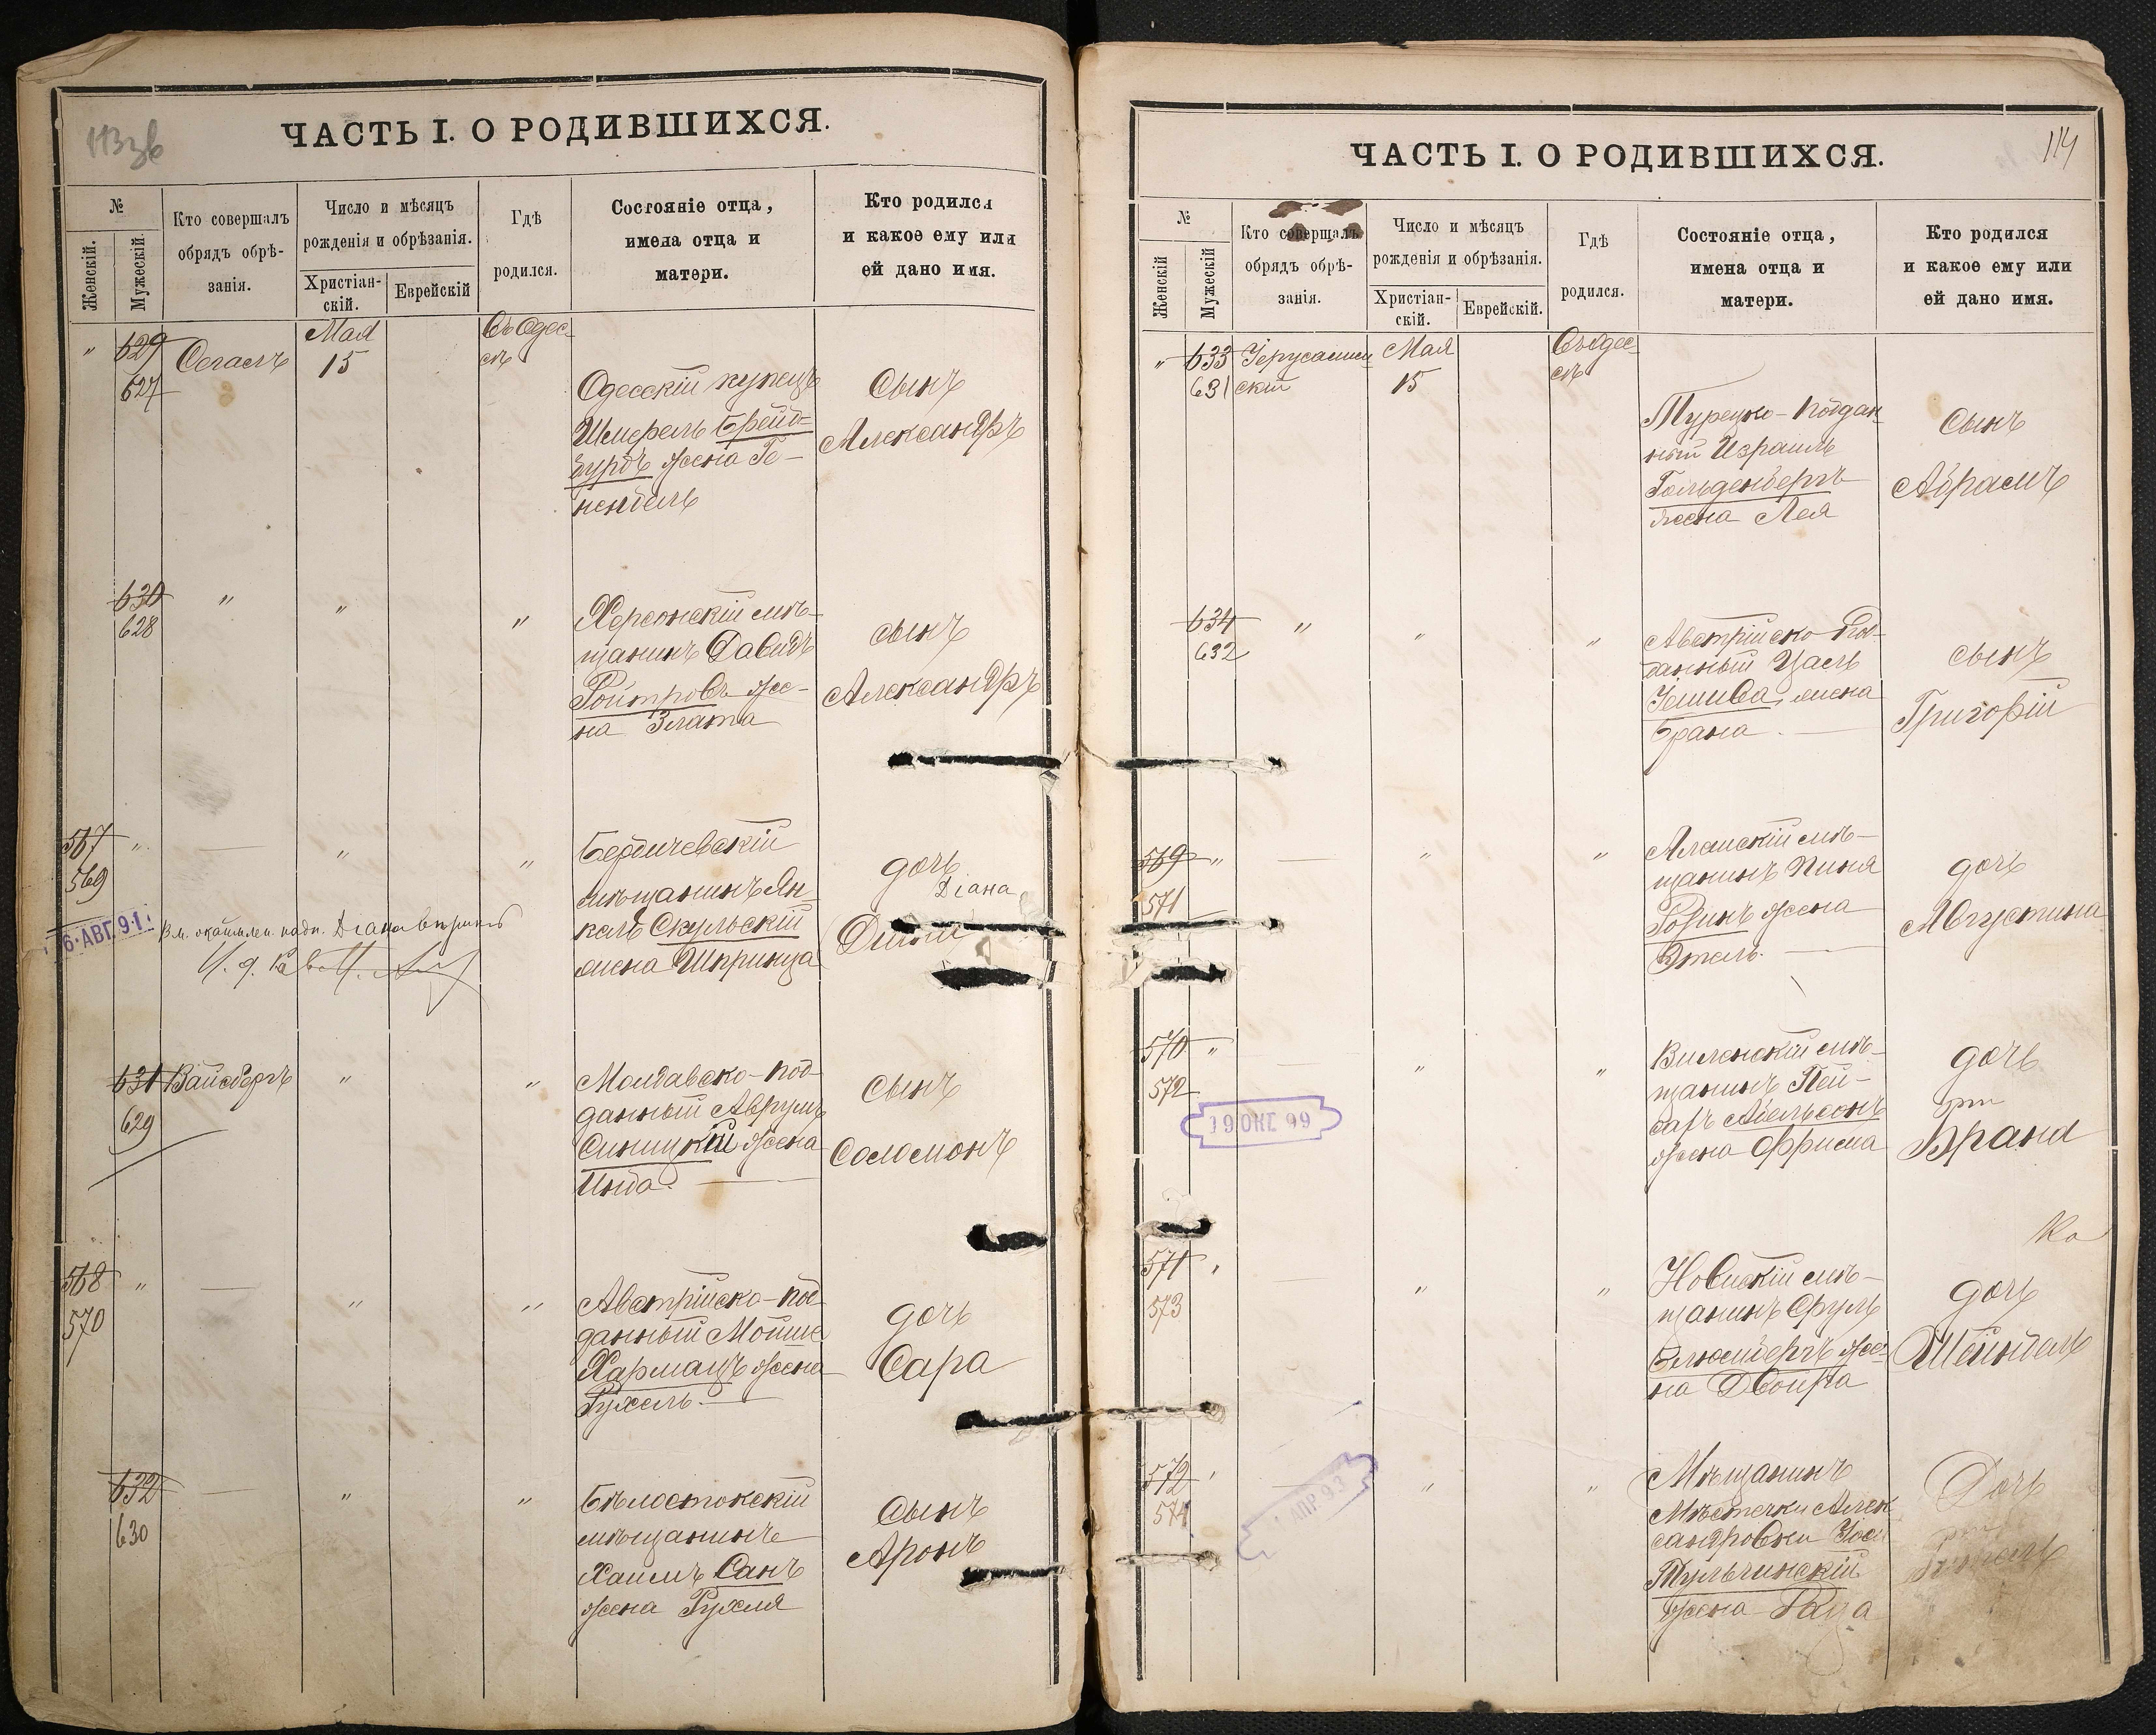 113 зв
ЧАСТЬ I. О РОДИВШИХСЯ.
№
Женскій.
Мужескій
Кто совершалъ
обрядъ обрѣ-
занія.
Число и мѣсяцъ
рожденія и обрѣзанія.
Христіан-
скій.
Еврейскій
Гдѣ
родился.
Состояніе отца,
имена отца и
матери.
Кто родился
и какое ему или
ей дано имя.
"
629
627
Сегалъ
Мая
15
Въ Одес-
сѣ
Одесскій купецъ
Шмерель Брейд-
бурдъ жена Ге-
нендель
Сынъ
Александръ
630
628
"
"
"
Херсонскій мѣ-
щанинъ Давидъ
Ройтровъ же-
на Злата
сынъ
Александръ
567
569
"
—
"
"
Бердичевскій
мѣщанинъ Ян-
кель Скульскій
жена Шпринца
дочь
Діана
6·АВГ.91.
631
629
Вайсбергъ
"
"
Молдавско-под-
данный Аврумъ
Синицкій жена
Инда. —
Сынъ
Соломонъ
568
570
"
—
"
"
Австрійско-под-
данный Мойше
Хармацъ жена
Рухель. —
дочь
Сара
632
630
—
"
"
Бѣлостокскій
мѣщанинъ
Хаимъ Санъ
жена Рухля
Сынъ
Аронъ
114
ЧАСТЬ I. О РОДИВШИХСЯ.
№
Женскій
Мужескій
Кто совершалъ
обрядъ обрѣ-
занія.
Число и мѣсяцъ
рожденія и обрѣзанія.
Христіан-
скій.
Еврейскій.
Гдѣ
родился.
Состояніе отца,
имена отца и
матери.
Кто родился
и какое ему или
ей дано имя.
"
633
631
Іерусалим-
скій
Мая
15
Въ Одес-
сѣ
Турецко-поддан-
ный Израиль
Гольденбергъ
жена Лея
Сынъ
Абрамъ
634
632
"
"
"
Австрійско-под-
данный
Іешива, жена
Брана. —
сынъ
Григорій
569
571
"
—
"
"
мѣ-
щанинъ Пиня
Розинъ жена
Этель. —
дочь
Августина
570
572
"
—
"
"
Виленскій мѣ-
щанинъ Пей-
сахъ Абельсонъ
жена Фрума
дочь
Врана
19 ОКТ 99
Ка
571
573
"
—
"
"
мѣ-
щанинъ Сруль
Блюмбергъ же-
на Двойра
дочь
Шейндель
572
574
—
"
"
Мѣщанинъ
Мѣстечки Алек-
сандровки
Тульчинскій
жена
Дочь
АПР 93